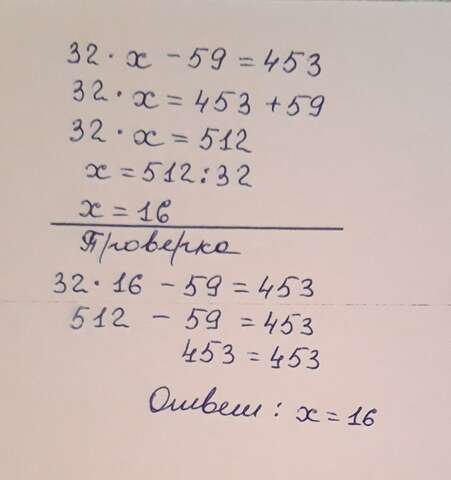 32 · x - 59 = 453
32 · x = 453 + 59
32 · x = 512
x = 512 : 32
x = 16
Проверка
32 · 16 - 59 = 453
512 - 59 = 453
453 = 453
Ответ : x = 16